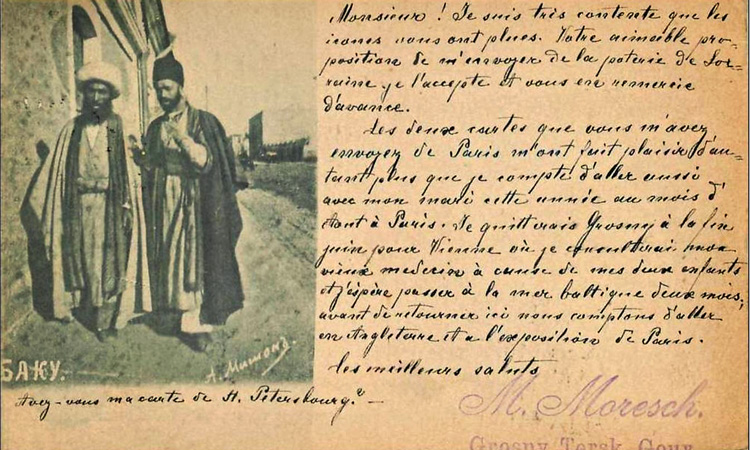 Monsieur ! Je suis très contente que les
icones vous ont plues. Votre aimeible pro=
position de m'envoyer de la poterie de Lor=
raine je l'accepte et vous en remercie
d'avance.
Les deux cartes que vous m'avez
envoyez de Paris m'ont fait plaisir d'au=
tant plus que je compte d'aller aussi
avec mon mari cette année au mois d'
Aout à Paris. Je quitterais Grosny à la fin
juin pour Vienne où je consulterai mon
vieux medecin à cause de mes deux enfants
et j'espère passer à la mer baltique deux mois,
avant de retourner ici nous comptons d'aller
en Angleterre et a l'exposition de Paris.
Les meilleurs saluts
M. Moresch.
Grosny Tersk. Gour.
БАКУ.
Avez-vous ma carte de St. Petersbourg? —